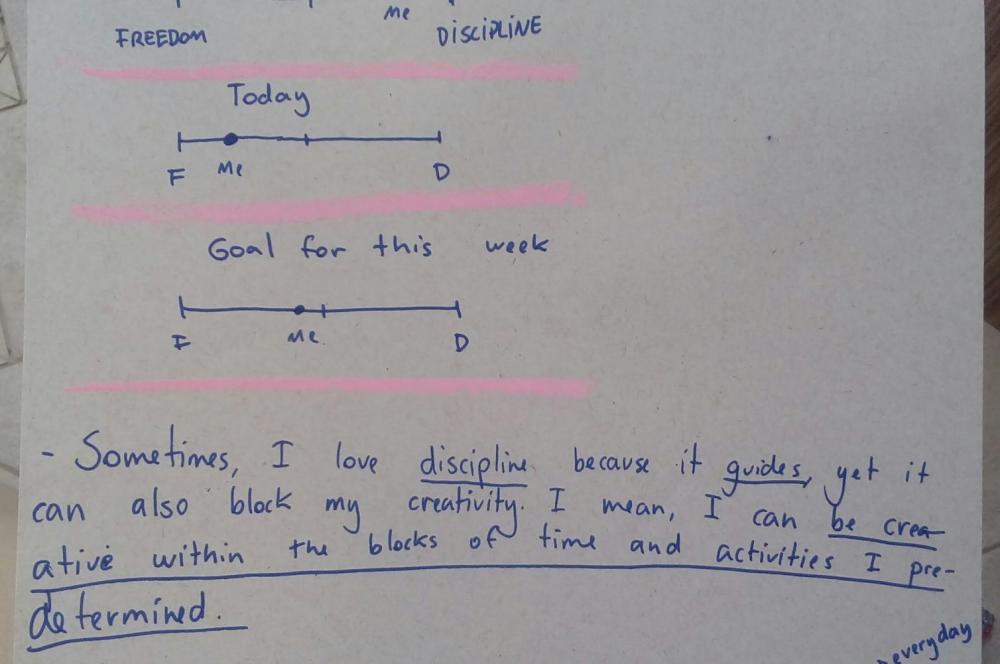 Me
FREEDOM DISCIPLINE
Today
F Me D
Goal for this week
F Me D
- Sometimes, I love discipline because it guides, yet it
can also block my creativity. I mean, I can be crea-
ative within the blocks of time and activities I pre-
determined.
everyday